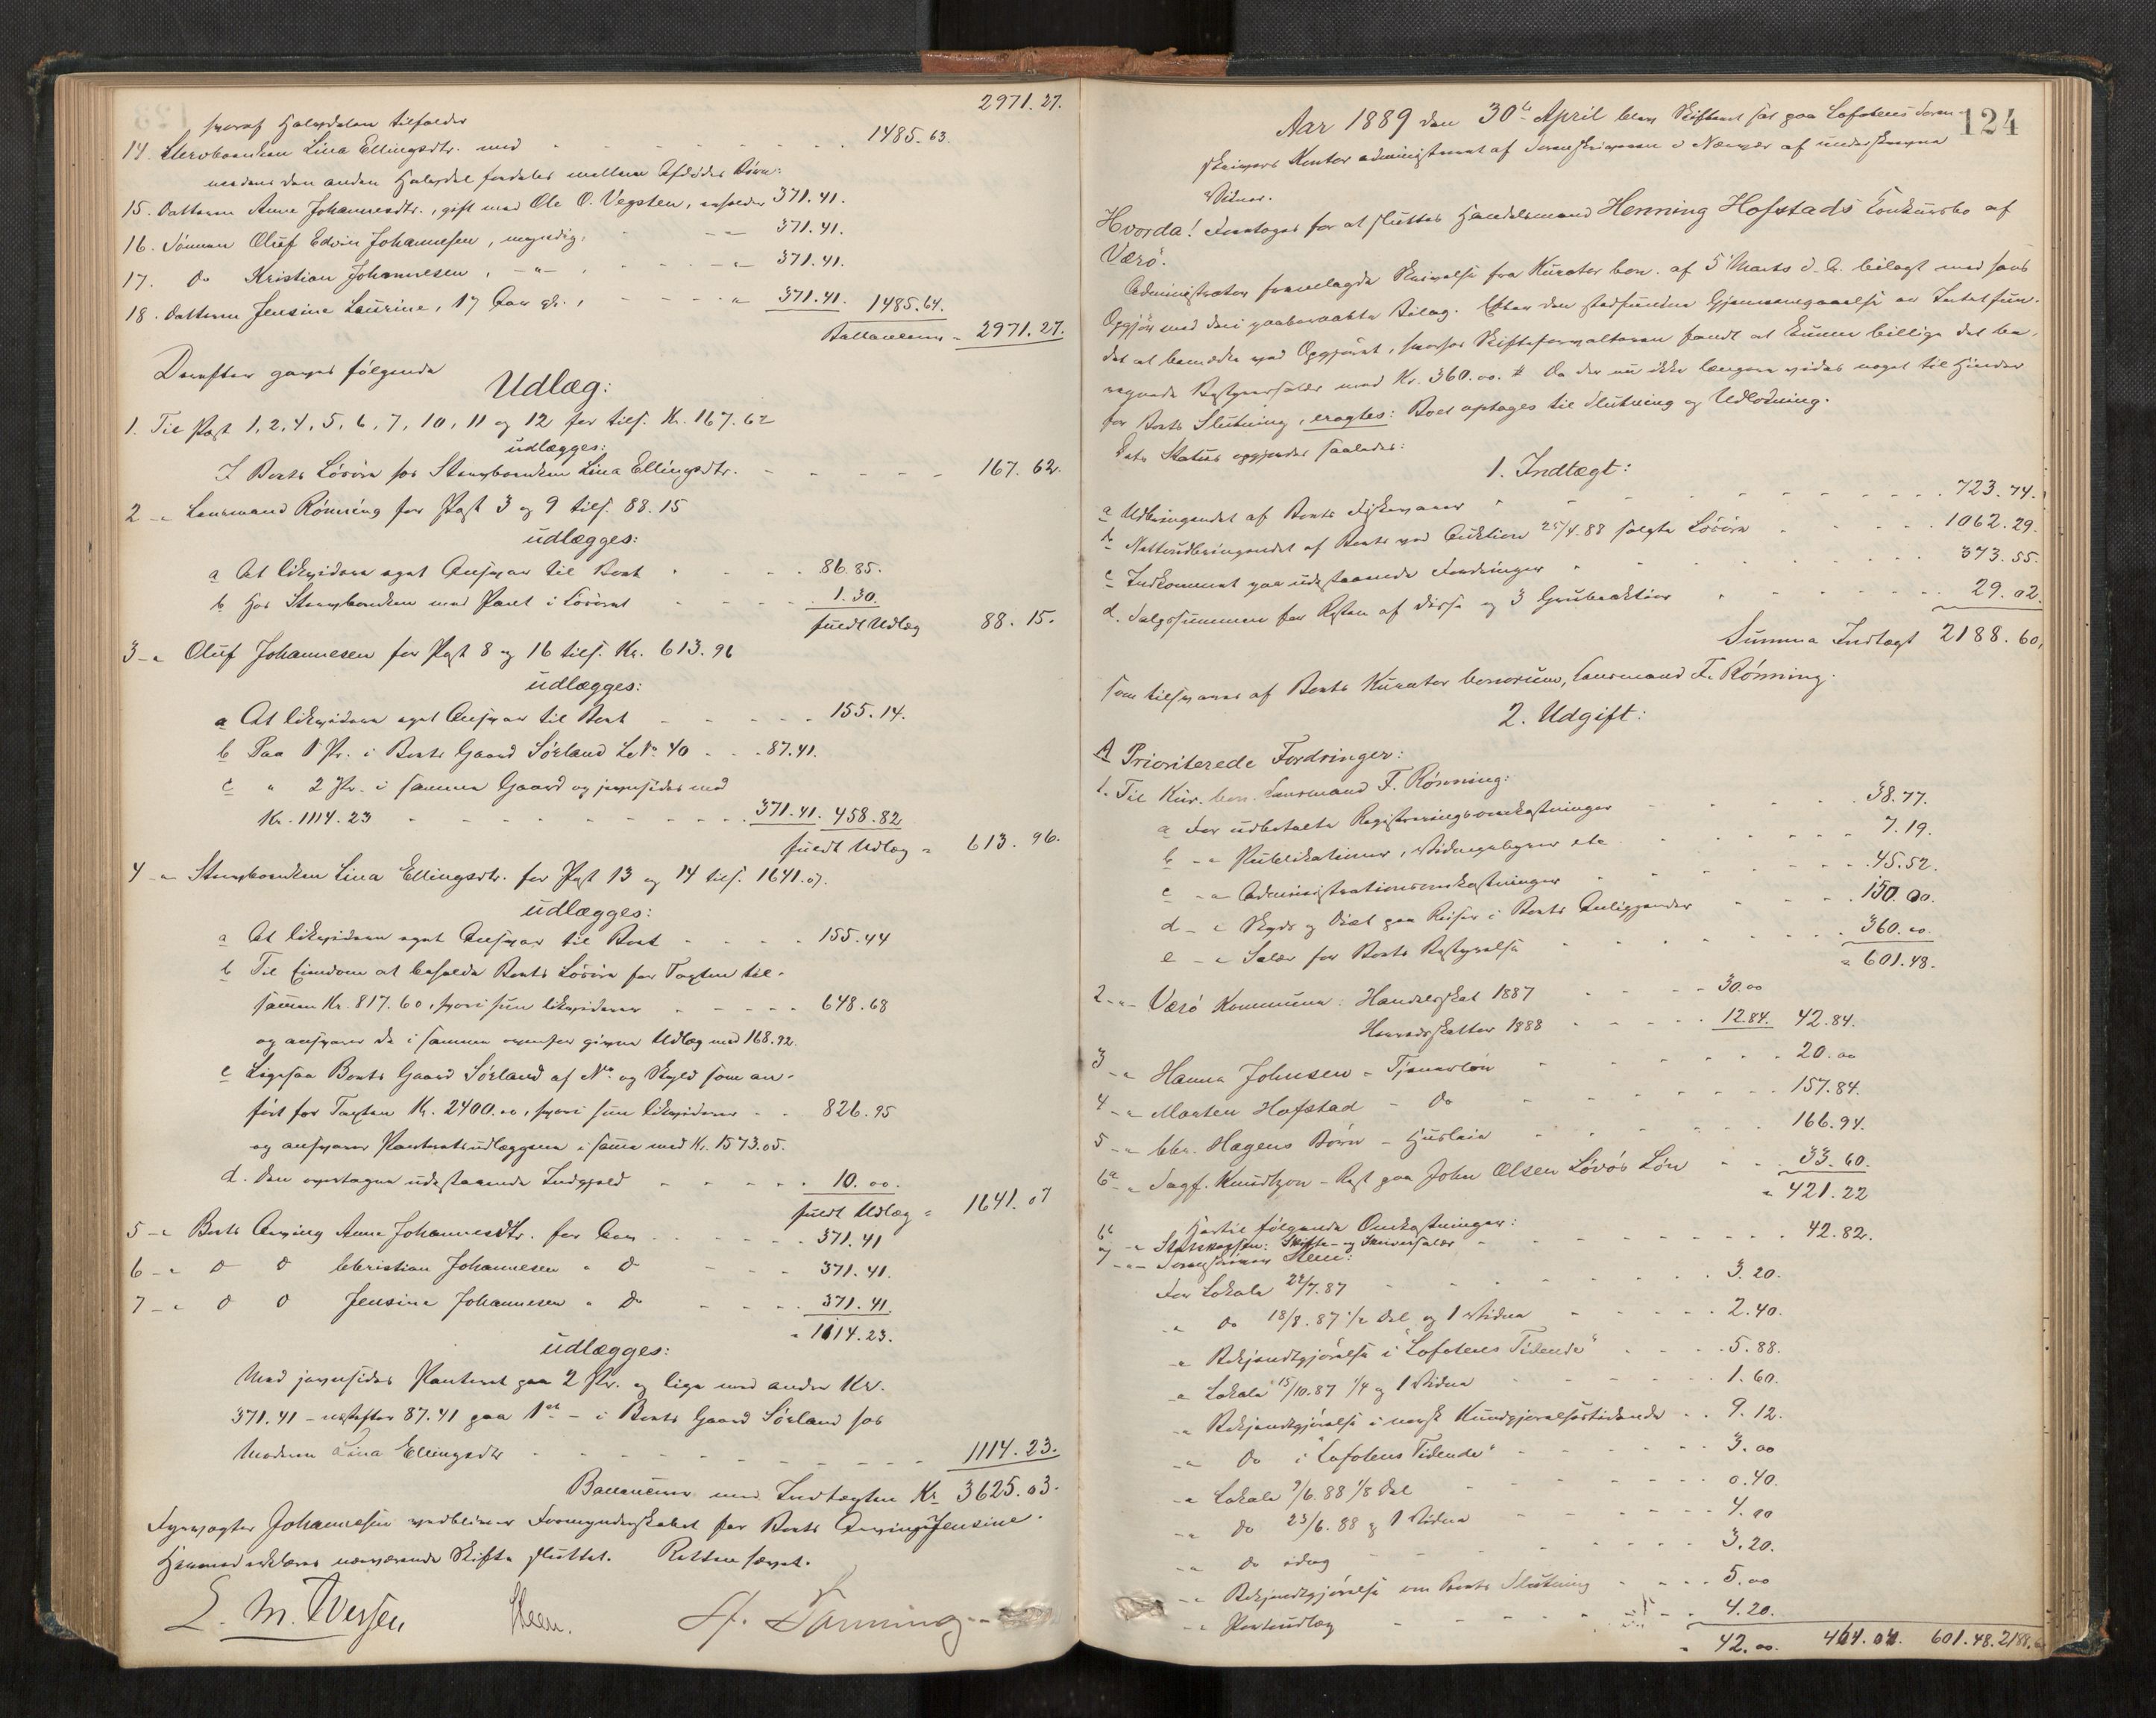 2971.27.
hvoraf Halvdelen tilfalder
14. Stervboenken Lina Ellingsdtr. med 1485.63.
medens den anden Halvdel fordeles mellem Afdødes Børn:
15. Datteren Anne Johannesdtr., gift med Ole O. Vegsten, erholder 371.41.
16. Sønnen Oluf Edvin Johannesen, myndig, 371.41.
17. Do Kristian Johannesen, -"- 371.41.
18. Datteren Jensine Laurine, 17 Aar gl., 371.41. 1485.64.
Ballancerer 2971.27.
Derefter gaves følgende
Udlæg:
1. Til Post 1, 2, 4, 5, 6, 7, 10, 11 og 12 for tils. Kr. 167.62
udlægges:
I Boets Løsøre hos Stervboenken Lina Ellingsdtr. 167.62.
2 -"- Lensmand Rønning for Post 3 og 9 tils. 88.15
udlægges:
a At likvidere eget Ansvar til Boet 86.85.
b Hos Stervboenken med Pant i Løsøret 1.30.
fuldt Udlæg 88.15.
3 -"- Oluf Johannesen for Post 8 og 16 tils. Kr. 613.96
udlægges:
a At likvidere eget Ansvar til Boet 155.14.
b Paa 1 Pr. i Boets Gaard Sørland L.No 40 87.41.
c " 2 Pr. i samme Gaard og jevnsides med
Kr. 1114.23 371.41. 458.82
fuldt Udlæg 613.96.
4 -"- Stervboenken Lina Ellingsdtr. for Post 13 og 14 tils. 1641.07.
udlægges:
a At likvidere eget Ansvar til Boet 155.44
b Til Eiendom at beholde Boets Løsøre for Taxten til-
sammen Kr. 817.60, hvori hun likviderer 648.68
og ansvarer de i samme ovenfor givne Udlæg med 168.92.
c Ligesaa Boets Gaard Sørland af No og Skyld som an-
ført for Taxten Kr. 2400.00, hvori hun likviderer 826.95
og ansvarer Panteretsudlæggene i samme med Kr. 1573.05.
d. Den overtagne udestaaende Indgjæld 10.00.
fuldt Udlæg 1641.07
5 -"- Boets Arving Anne Johannesdtr. for Arv 371.41
6 -"- Do Do Christian Johannesen " Do 371.41.
7 -"- Do Do Jensine Johannesen " Do 371.41.
1114.23.
udlægges:
Med jevnsides Panteret paa 2 Pr. og lige med andre Kr.
371.41 - næstefter 87.41 paa 1st - i Boets Gaard Sørland hos
Moderen Lina Ellingsdtr 1114.23.
Balancerer med Indtægten Kr 3625.03.
Fyrvogter Johannesen vedbliver Formynderskabet for Boets Arving Jensine.
Hermed erklæres nærværende Skifte sluttet. Retten hævet.
E. M. Iversen Steen. F. Rønning
124
Aar 1889 den 30te April blev Skifteret sat paa Lofotens Soren-
skrivers Kontor administreret af Sorenskriveren i Nærvær af underskrevne
Vidner.
Hvorda! Foretoges for at sluttes Handelsmand Henning Hofstads Konkursbo af
Værø.
Administrator fremlagde Skrivelse fra Kurator bon. af 5 Marts d. A. bilagt med hans
Opgjør med deri paaberaabte Bilag. Efter den stedfundne Gjennemgaaelse er Intet fun-
det at bemærke ved Opgjøret, hvorfor Skifteforvalteren fandt at kunne billige det be-
regnede Bestyrersalær med Kr. 360.00. Da der nu ikke længere vides noget til Hinder
for Boets Slutning, eragtes: Boet optages til Slutning og Udlodning.
Dets Status opgjøres saaledes:
1. Indtægt:
a Udbringendet af Boets Fiskevarer 723.74.
b Nettoudbringendet af Boets ved Auktion 25/4.88 solgte Løsøre 1062.29.
c Indkommet paa udestaaende Fordringer 373.55.
d. Salgssummen for Resten af disse og 3 Grubeaktier 29.02
Summa Indtægt 2188.60.
som tilsvares af Boets Kurator bonorum, Lensmand F. Rønning.
2. Udgift:
A Prioriterede Fordringer:
1. Til Kur. bon. Lensmand F. Rønning:
a For udbetalte Registreringsomkostninger 38.77.
b -"- Publikationer, Vidnegebyrer etc 7.19.
c -"- Administrationsomkostninger 45.52.
d -"- Skyds og Diæt paa Reiser i Boets Anliggender 150.00.
e -"- Salær for Boets Bestyrelse 360.00
601.48.
2 -"- Værø Kommune. Handelsskat 1887 30.00
Herredsskatter 1888 12.84. 42.84.
3 -"- Hanna Johnsen - Tjenerløn 20.00
4 -"- Marten Hofstad - Do 157.84.
5 -"- Chr. Hagens Børn - Husleie 166.94.
6a -"- Sagf. Knudtzon - Rest paa John Olsen Løvøs Løn 33.60.
421.22
Hertil følgende Omkostninger:
6b og -"- Statskassen: Skifte- og Skriversalær 42.82.
7 -"- Sorenskriver Steen:
For Lokale 22/7.87 3.20.
-"- Do 18/8.87 1/2 Del og 1 Vidne 2.40.
-"- Bekjendtgjørelse i "Lofotens Tidende" 5.88.
-"- Lokale 15/10.87 1/4 og 1 Vidne 1.60.
-"- Bekjendtgjørelse i norsk Kundgjørelsestidende 9.12.
-"- Do i "Lofotens Tidende" 3.00
-"- Lokale 9/6.88 1/8 Del 0.40.
-"- Do 23/6.88 og 1 Vidne 4.00
-"- Do idag 3.20.
-"- Bekjendtgjørelse om Boets Slutning 5.00
-"- Portoudlæg 4.20.
42.00. 464.04. 601.48. 2188.60